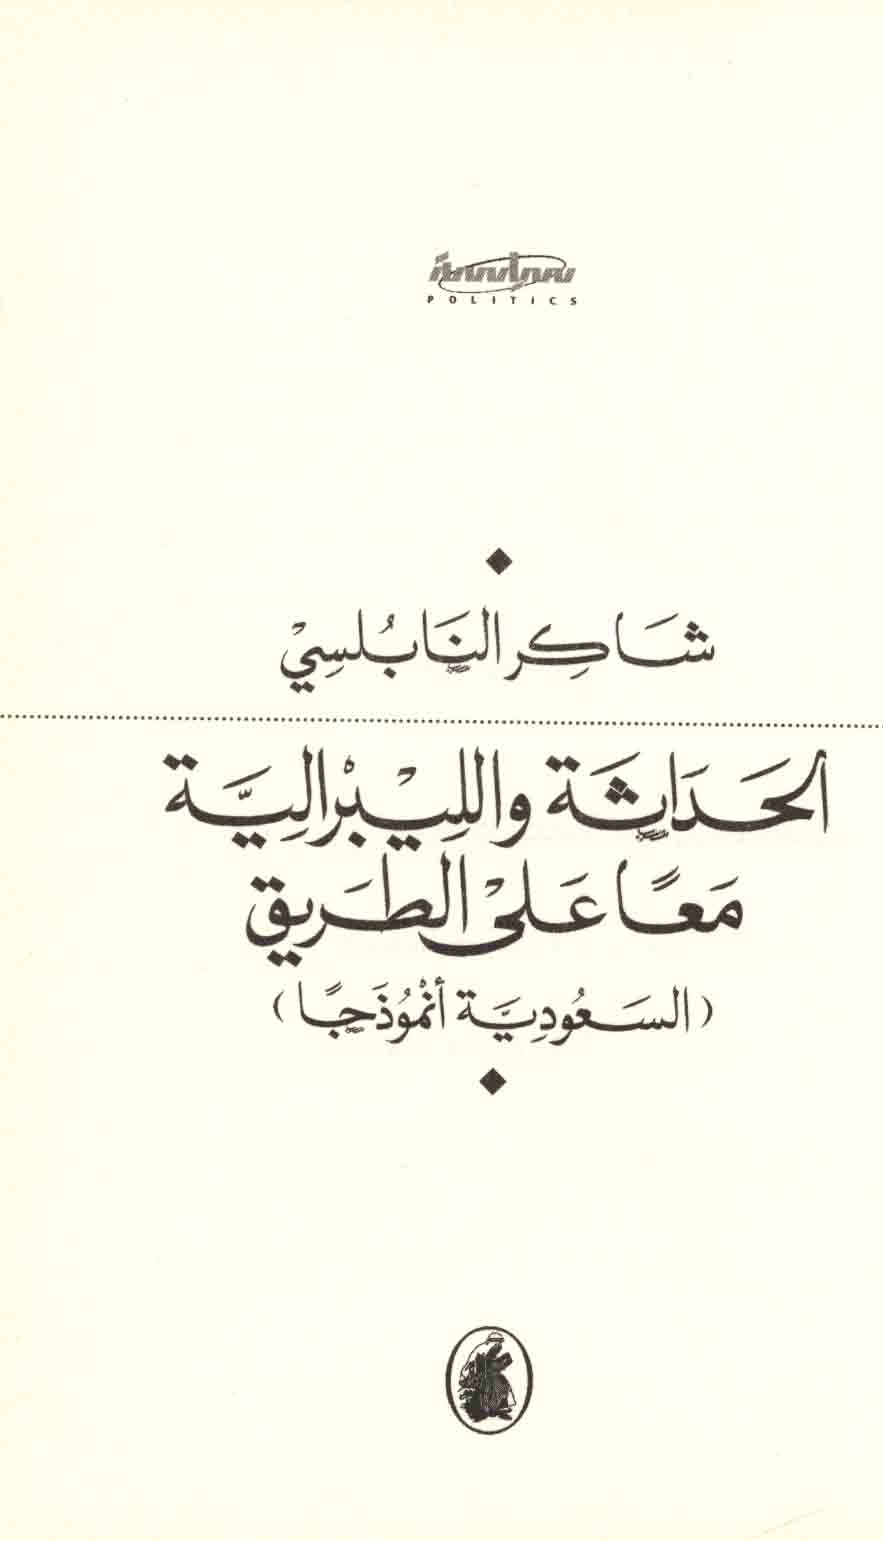 سياسة
POLITICS
شَاكِر النَابُلسِيْ
الحَدَاثَة واللِيْبْرالِيَّة
مَعًا عَلىْ الطَرِيق
(السَعُودِيَّة أنْمُوذَجًا)